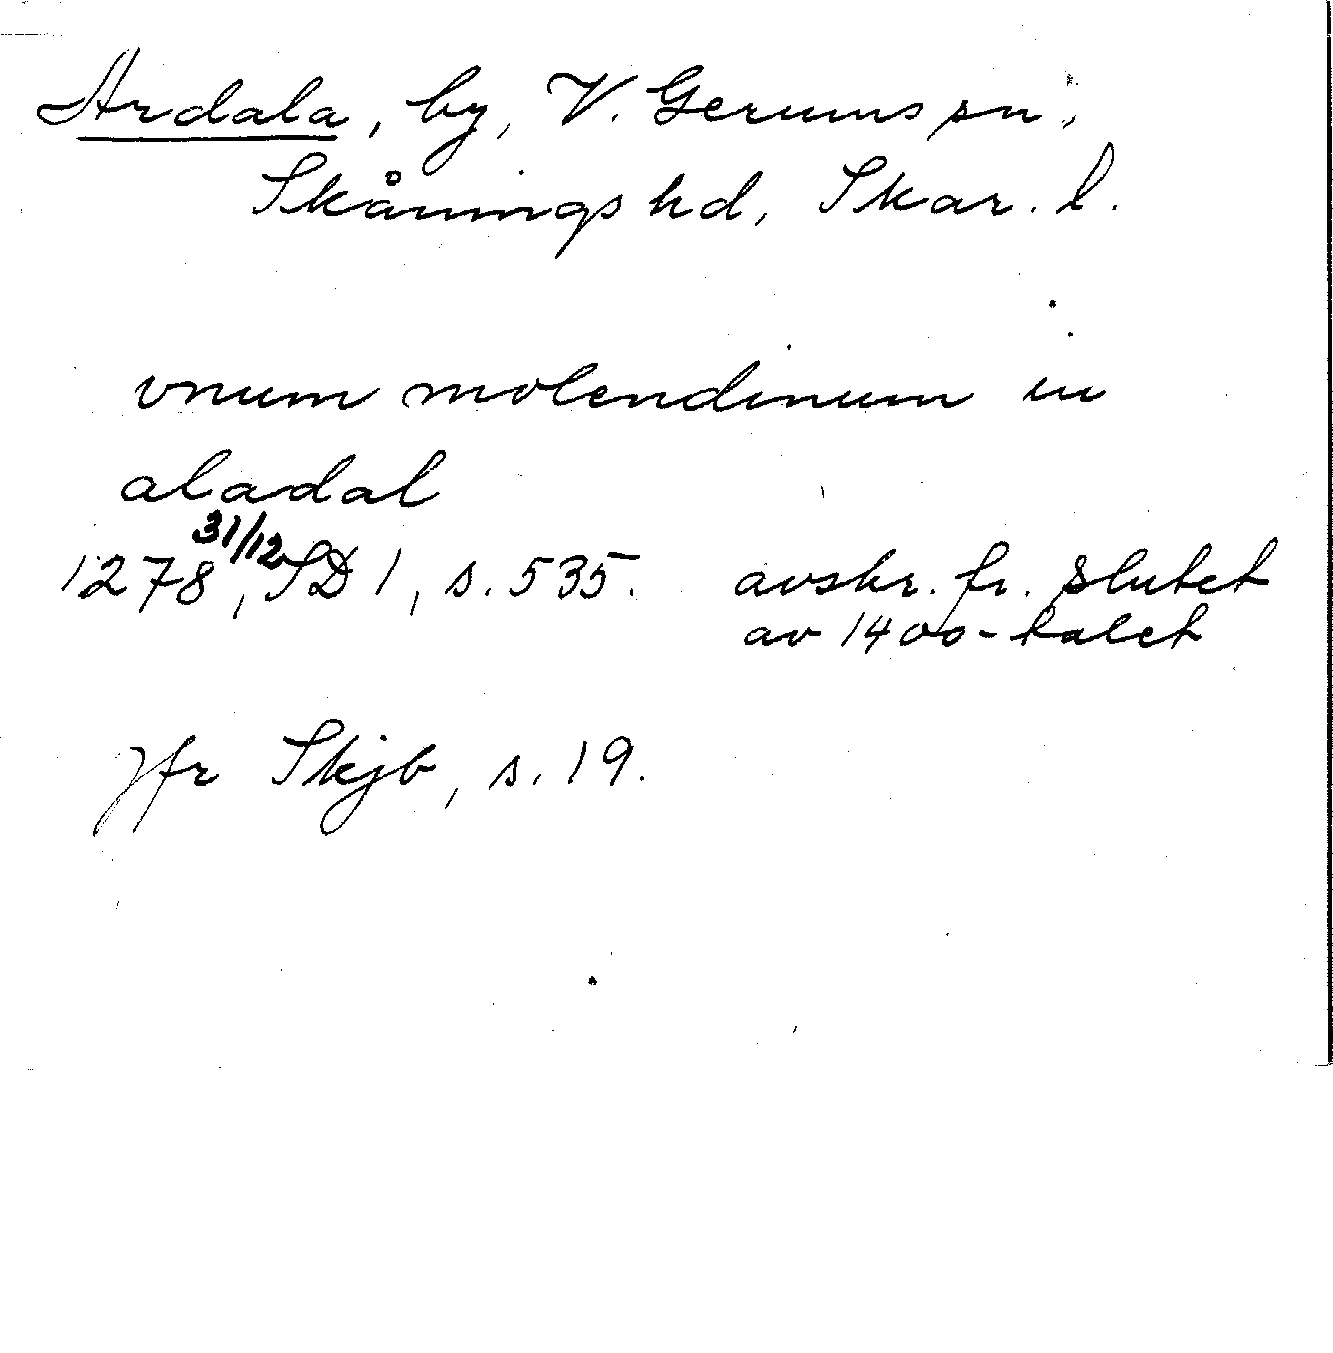 Ardala, by, V. Gerums sn,
Skånings hd, Skar. l.
vnum molendinum in
aladal
1278 31/12, SD 1, s. 535. avskr. fr. slutet
av 1400-talet
Jfr Skjb, s. 19.